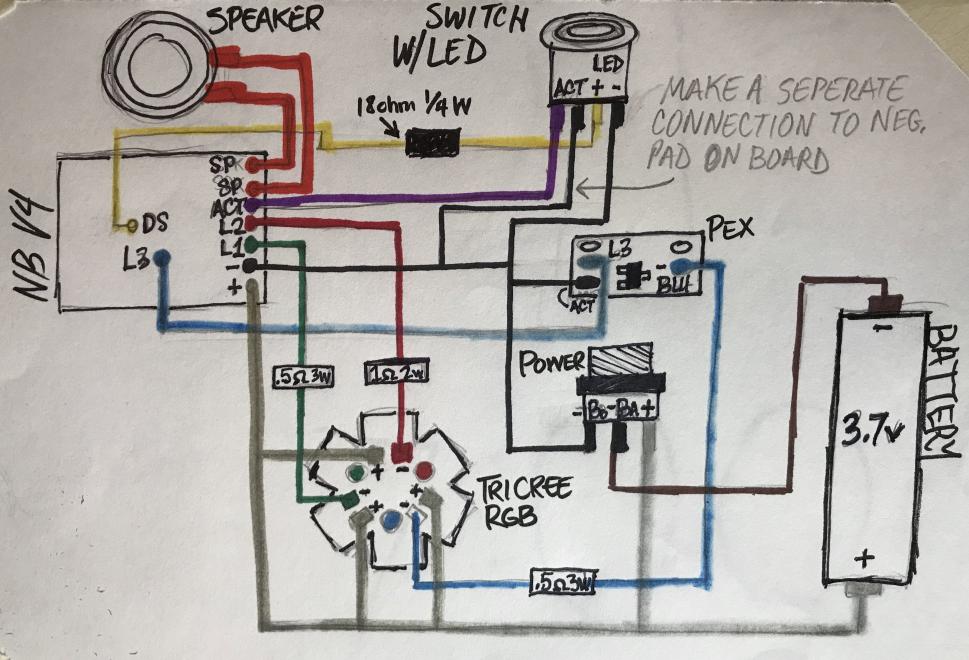 SPEAKER
SWITCH
W/LED
18ohm 1/4 W
LED
ACT + -
MAKE A SEPERATE
CONNECTION TO NEG.
PAD ON BOARD
NB V4
SP
SP
ACT
L2
L1
-
+
DS
L3
PEX
L3
-
BLU
ACT
POWER
- B- BA +
BATTERY
-
3.7v
+
.5Ω3W
1Ω2W
+ -
- +
+ -
TRICREE
RGB
.5Ω3W